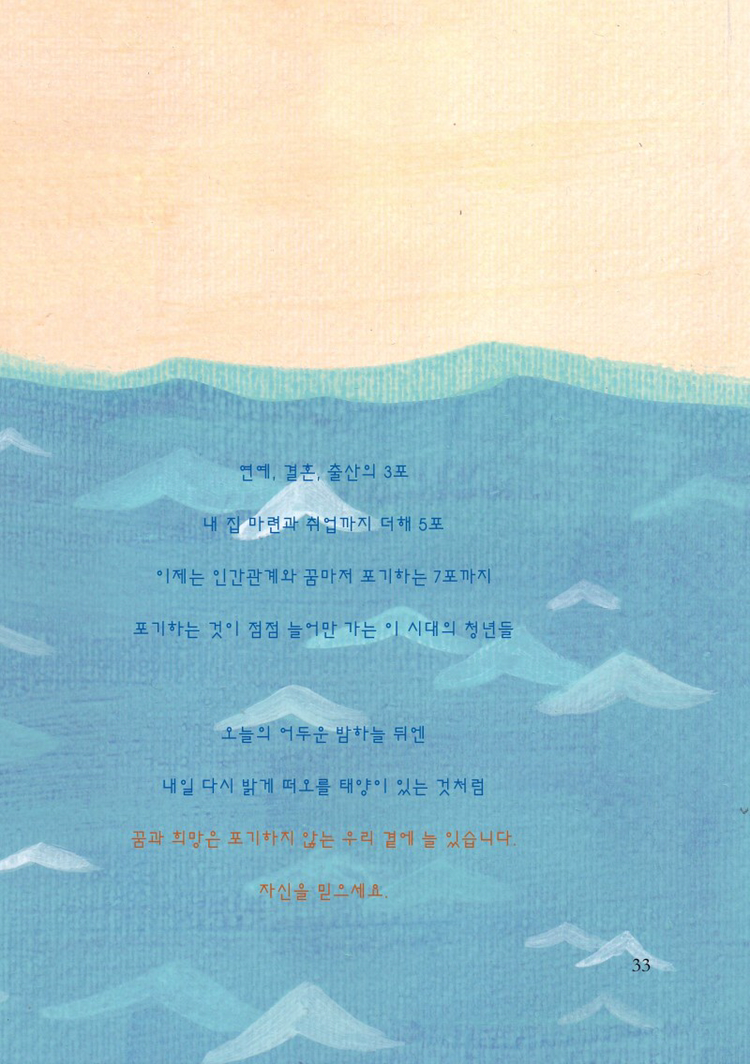 연예, 결혼, 출산의 3포
내 집 마련과 취업까지 더해 5포
이제는 인간관계와 꿈마저 포기하는 7포까지
포기하는 것이 점점 늘어만 가는 이 시대의 청년들
오늘의 어두운 밤하늘 뒤엔
내일 다시 밝게 떠오를 태양이 있는 것처럼
꿈과 희망은 포기하지 않는 우리 곁에 늘 있습니다.
자신을 믿으세요.
33